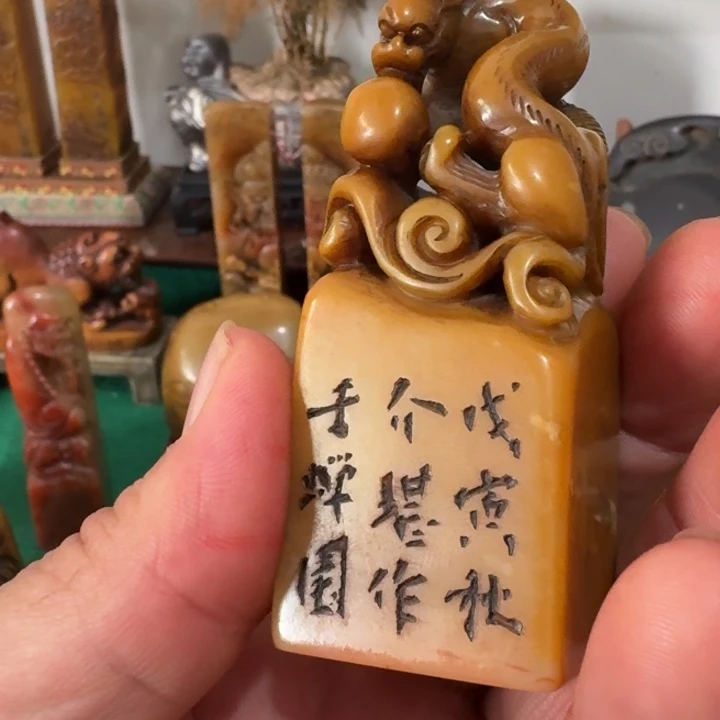 戊寅秋
介堪作
于蟬園